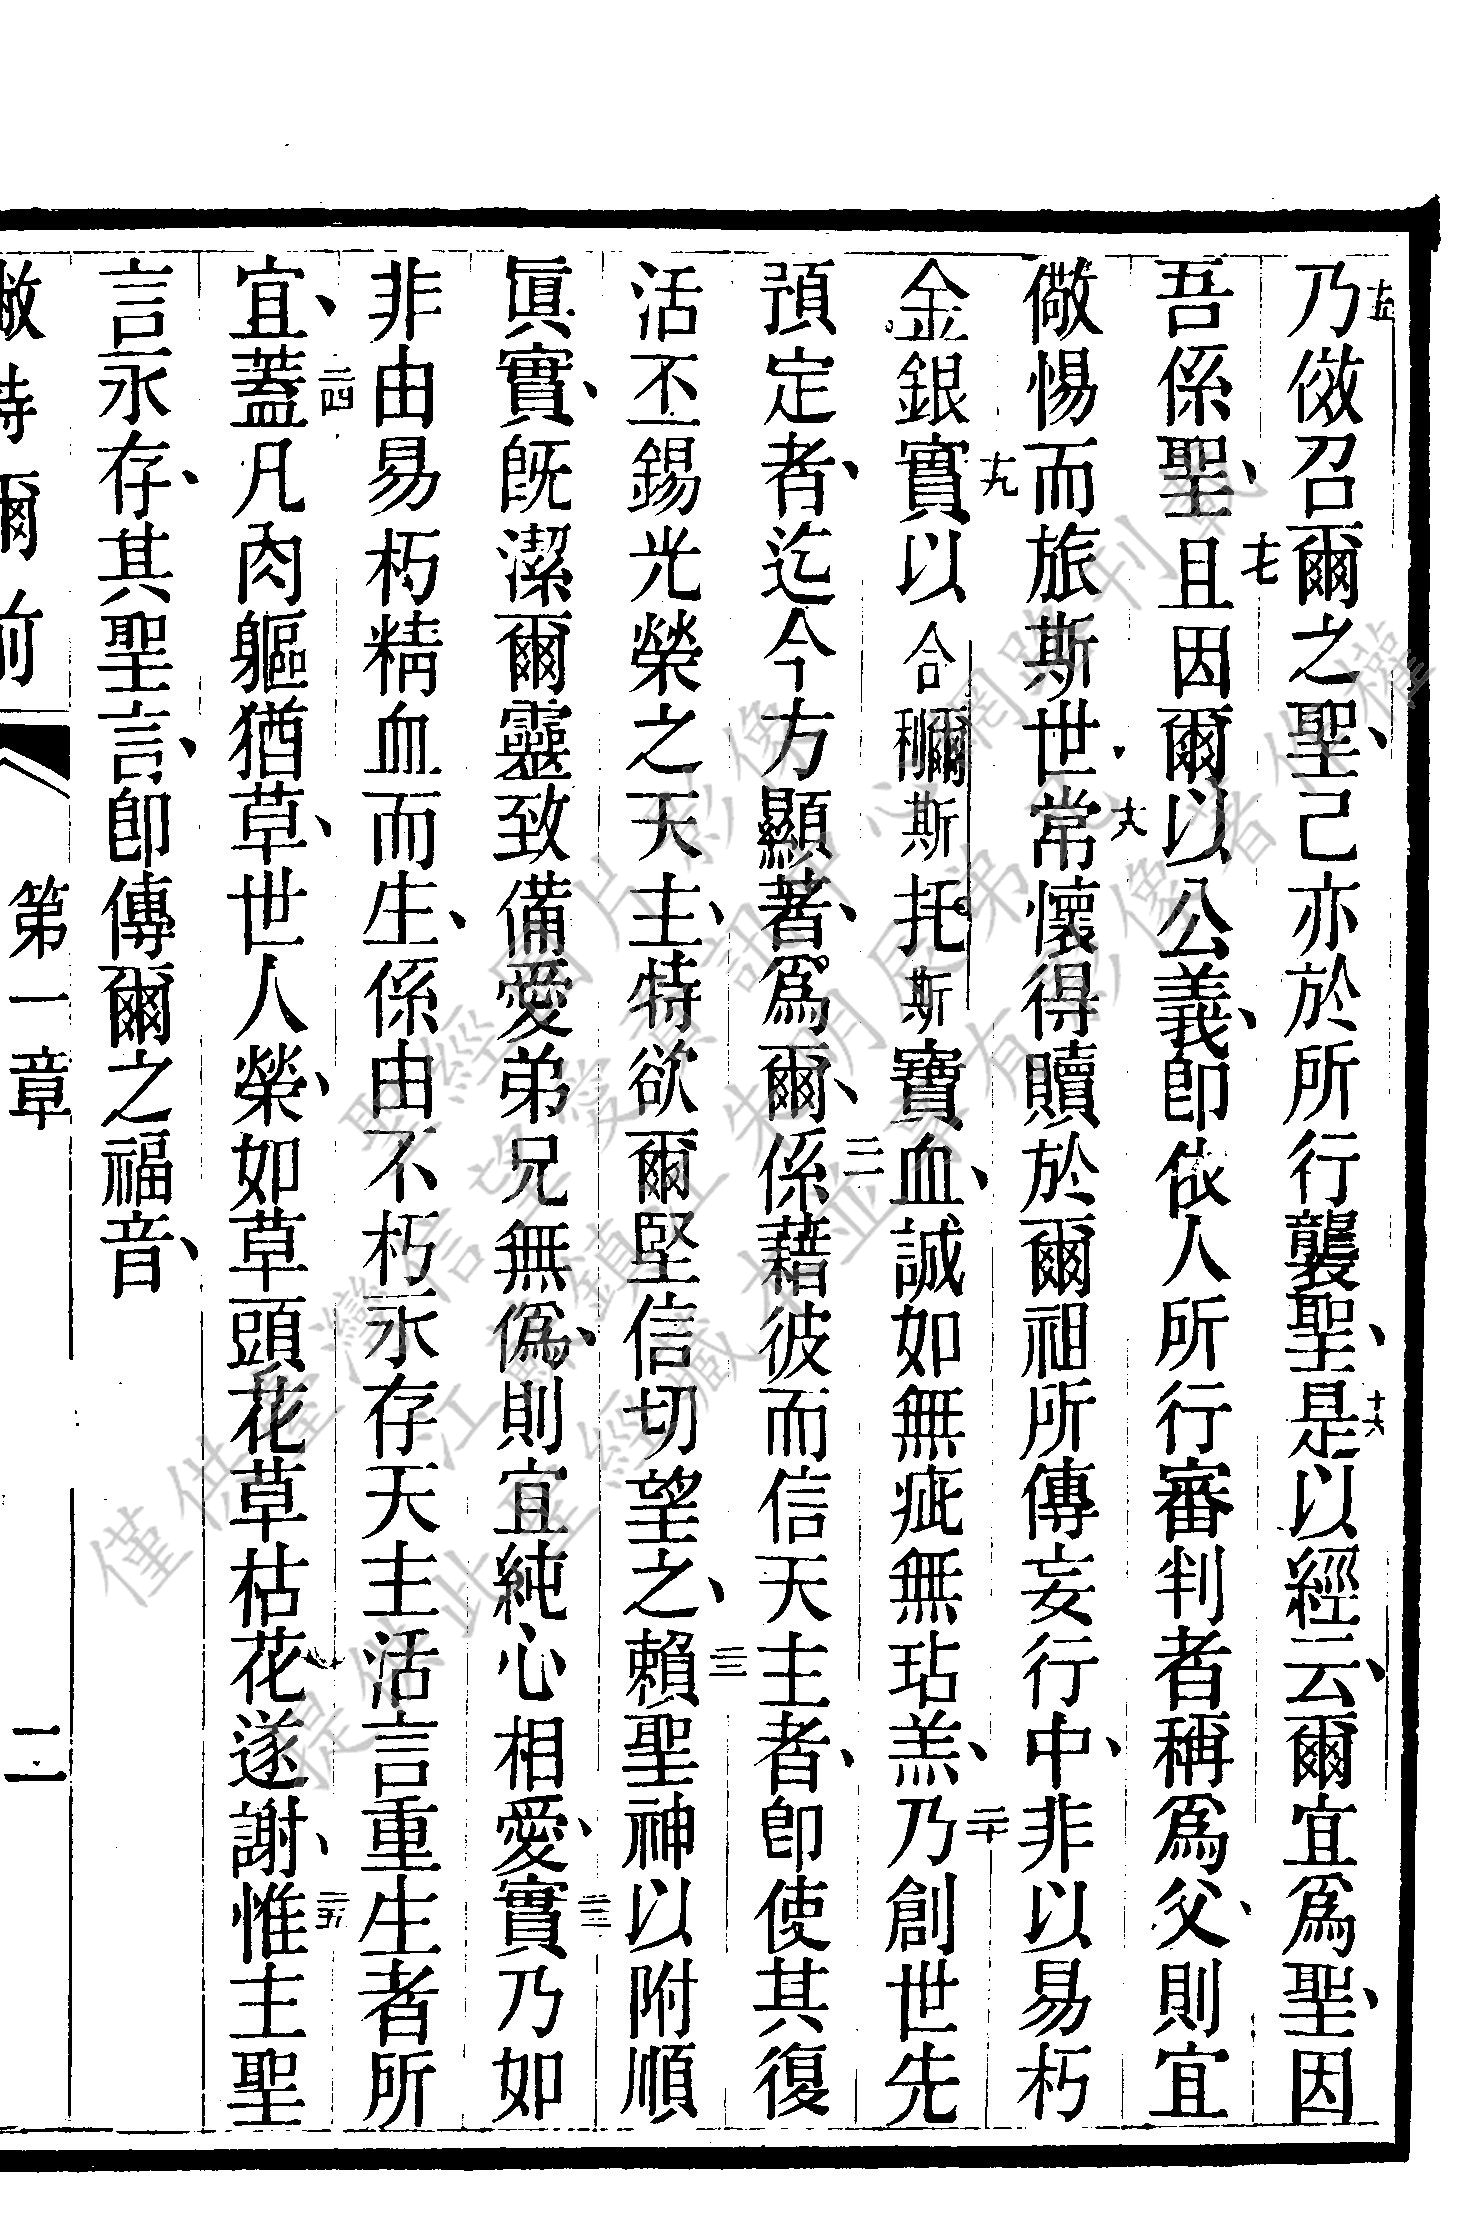 十五乃傚召爾之聖、己亦於所行襲聖、十六是以經云、爾宜爲聖、因
吾係聖、十七且因爾以公義、卽依人所行審判者稱爲父、則宜
儆惕而旅斯世、十八常懷得贖於爾祖所傳妄行中、非以易朽
金銀、十九實以合穪斯托斯寶血、誠如無疵無玷羔、二十乃創世先
預定者、迄今方顯著、爲爾、二一係藉彼而信天主者、卽使其復
活丕錫光榮之天主、特欲爾堅信切望之、二二賴聖神以附順
眞實、旣潔爾靈致備愛弟兄無僞、則宜純心相愛、二三實乃如
非由易朽精血而生、係由不朽永存天主活言重生者所
宜、二四蓋凡肉軀猶草、世人榮、如草頭花、草枯花遂謝、二五惟主聖
言永存、其聖言、卽傳爾之福音、
第一章
二